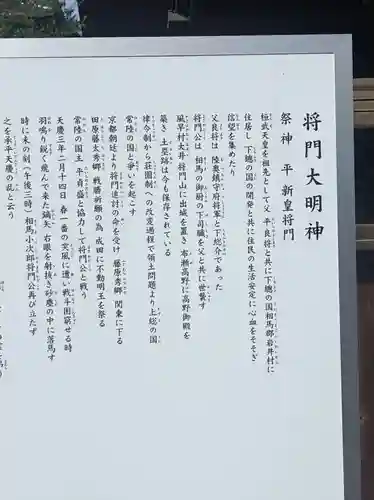 将門大明神
祭神 平 新皇将門
桓武天皇を祖先として父 平良将と共に下總の国相馬郡岩井村に
住居し 下總の国の開発と共に住民の生活安定に心血をそそぎ
信望を集めたり
父良将は 陸奥鎮守府将軍と下総介であった
将門公は 相馬の御厨の下司職を父と共に世襲す
風早村大井将門山に出城を置き 布瀬高野に高野御殿を
築き 土塁跡は今も保存されている
律令制から荘園制への改変過程で領土問題より上総の国
常陸の国と争いを起こす
京都朝廷より将門追討の命を受け 藤原秀郷 関東に下る
田原藤太秀郷 戦勝祈願の為 成田に不動明王を祭る
常陸の国主 平貞盛と協力して将門公と戦う
天慶三年二月十四日 春一番の突風に遭い戦斗困窮せる時
羽鳴り鋭く飛んで来た鏑矢 右眼を射抜き砂塵の中に落馬す
時に未の刻(午後三時)相馬小次郎将門公再び立たず
之を承平天慶の乱と云う